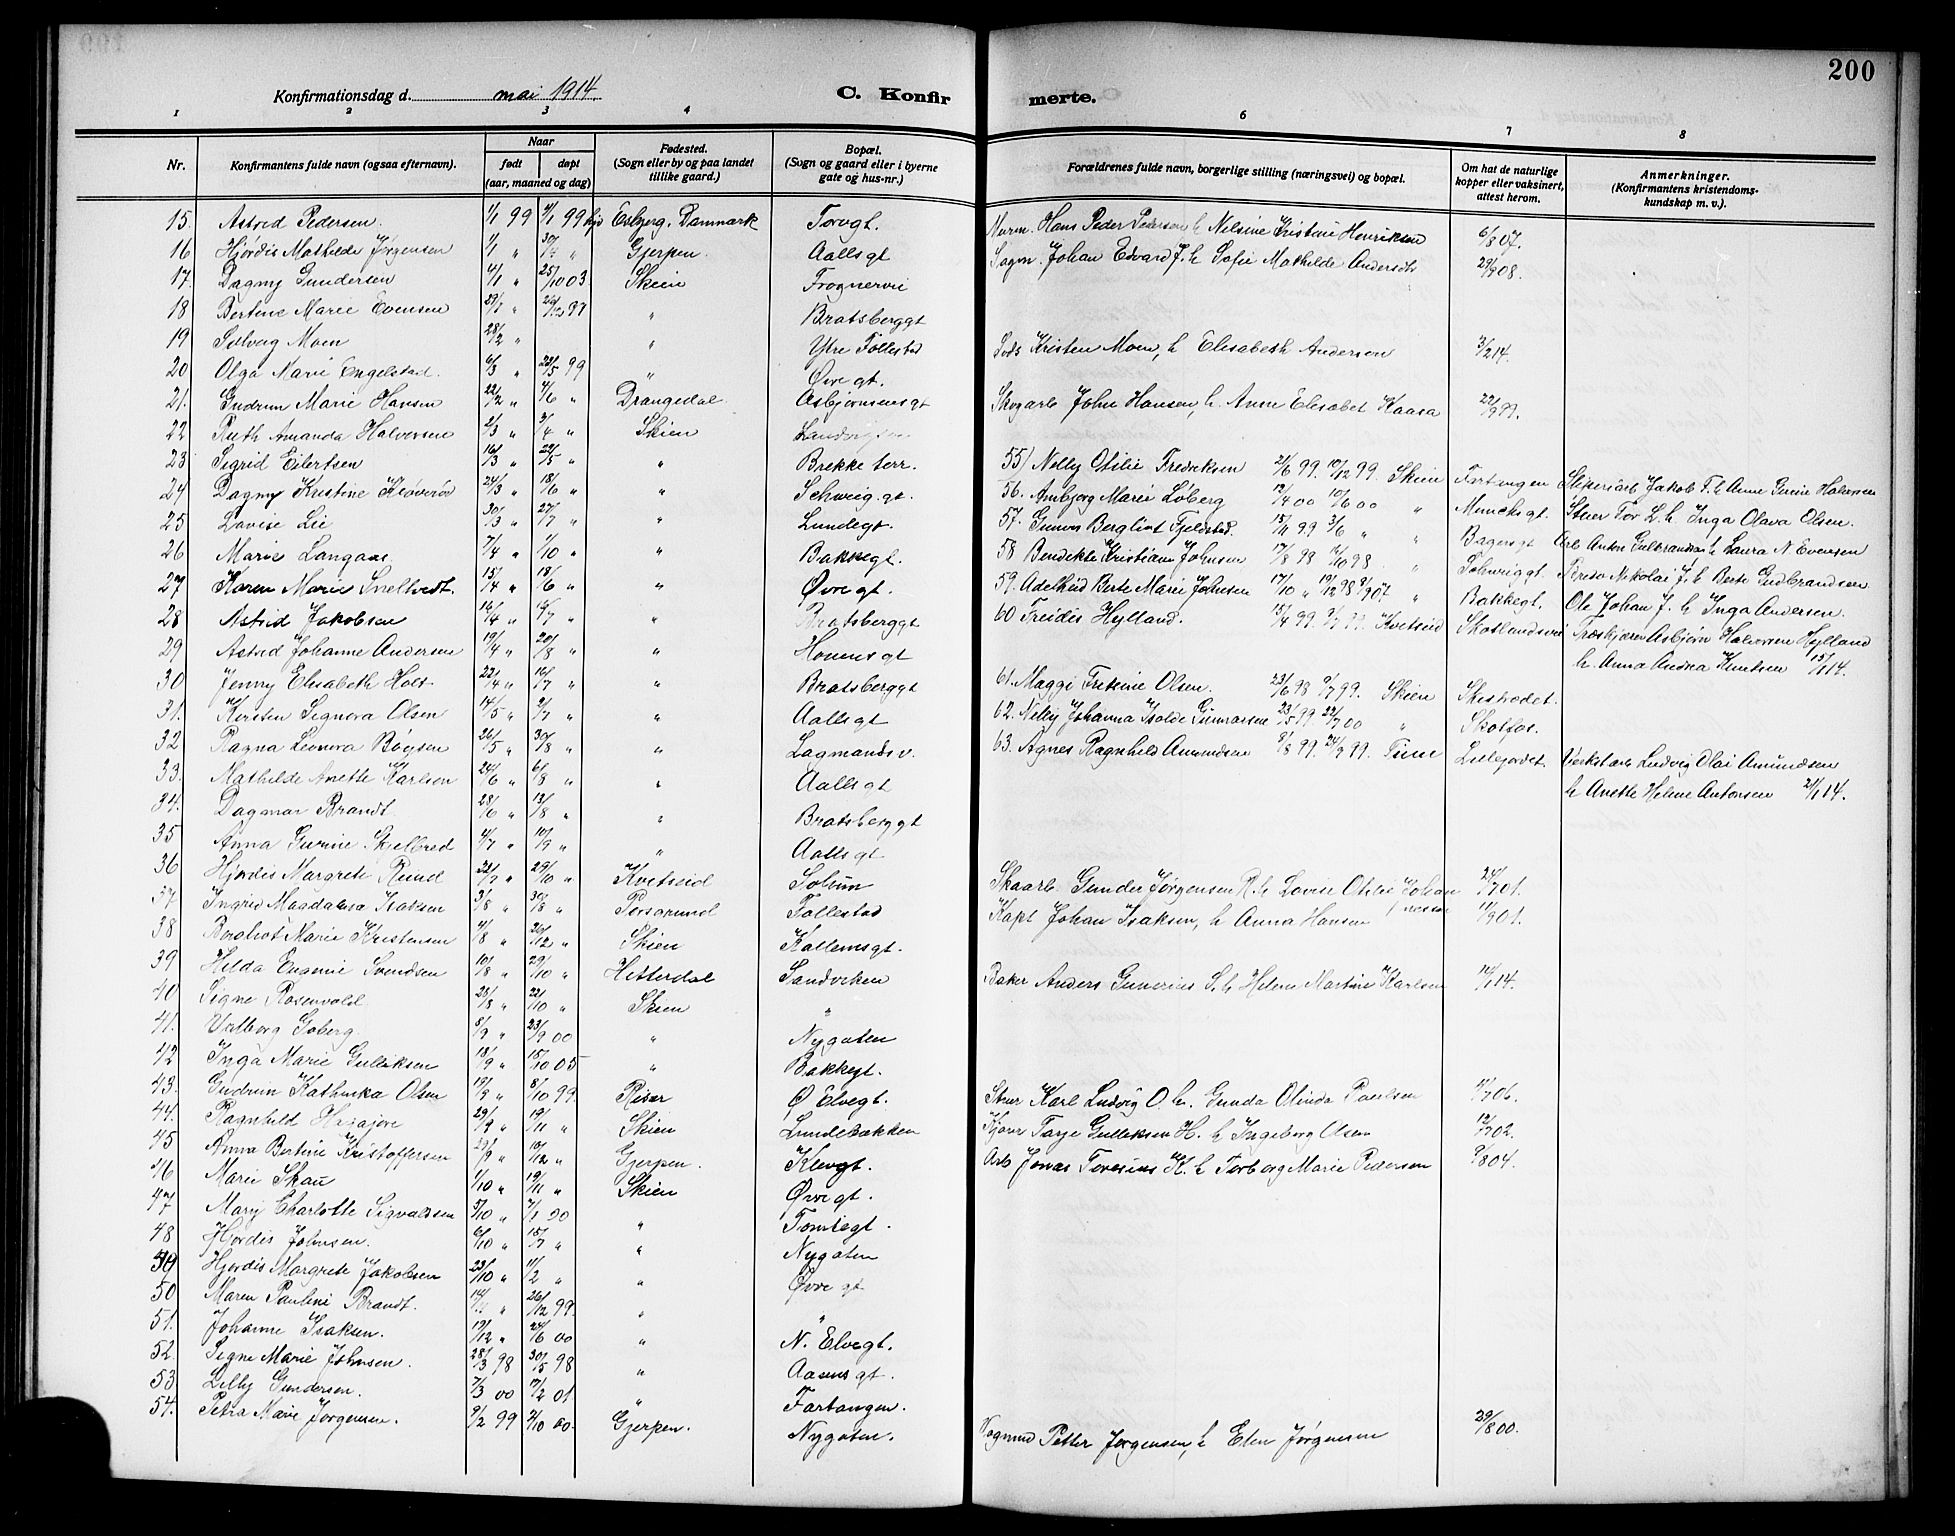 200
Konfirmationsdag d. mai 1914. C. Konfirmerte.
1 2 3 4 6 7 8
Nr. Konfirmantens fulde navn (ogsaa efternavn). Naar født døpt (aar, maaned og dag) Fødested. (Sogn eller by og paa landet tillike gaard.) Bopæl. (Sogn og gaard eller i byerne gate og hus-nr.) Forældrenes fulde navn, borgerlige stilling (næringsvei) og bopæl. Om hat de naturlige kopper eller vaksinert, attest herom. Anmerkninger. (Konfirmantens kristendomskundskap m. v.).
15. Astrid Pedersen. 1/1 99 99 Esbjerg, Danmark Torvgt. Hans Peder Pedersen, h Nelsine Kristine Henriksen 6/8 07.
16 Hjørdis Mathilde Jørgensen 1/1 " " Gjerpen. Aallsgt Johan Edvard J. h Sofie Mathilde Andersdtr 29/9 08.
17. Dagny Gundersen 4/1 " 25/10 03. Skien Frognervei
18 Bertine Marie Evensen " " Bratsberggt
19 Solveig Moen 28/2 " " Ytre Follestad Kristen Moen, h Elisabeth Andersen 3/2 14.
20 Olga Marie Engelstad. 6/3 " 23/5 99 " Øvregt.
21. Gudrun Marie Hansen 22/2 " 4/6 " Drangedal Asbjørnsensgt Skogarb John Hansen, h. Anne Elisabet Kaasa 22/9 99.
22 Ruth Amanda Halvorsen 2/3 " 3/4 " Skien
23 Sigrid Eilertsen 16/3 " 22/5 " " Brekke terr.
24 Dagny Kristine Kløverød 24/3 " 18/6 " " Schweig.gt.
25 Lovise Lie 30/3 " 27/7 " " Lundegt.
26 Marie Langaas 7/4 " 1/10 " " Bakkegt.
27 Karen Marie Snelltvedt. 15/4 " 18/6 " " Øvregt.
28 Astrid Jakobsen 16/4 " 16/7 " " Bratsberggt
29 Astrid Johanne Andersen 19/4 " 20/8 " " Houensgt
30 Jenny Elisabeth Holt 22/4 " 16/7 " " Bratsberggt
31. Kirsten Signora Olsen 14/5 " 2/7 " " Aallsgt
32 Ragna Leonora Bøysen 26/5 " 30/8 " " Lagmandsv.
33. Mathilde Anette Karlsen 24/6 " 6/8 " " Aallsgt
34. Dagmar Brandt 28/6 " 13/8 " " Bratsberggt
35 Anna Gurine Skilbred 4/7 " 10/9 " " Aallsgt
36 Hjørdis Margrete Rund 22/7 " 29/10 " Kvitseid Solum Skaarb Gunder Jørgensen R. h Lovise Otilie Johannesen 24/7 01.
37 Ingrid Magdalena Isaksen 3/8 " " Porsgrund Follestad Kapt Johan Isaksen, h Anna Hansen 11/9 01.
38 Borghot Marie Kristensen 4/8 " 26/12 " Skien Kallemsgt.
39 Hilda Eugenie Svendsen 10/8 " 29/10 " Hitterdal Sandviken Baker Anders Gunerius S. h Helene Martine Karlsen 14.
40 Signe Rosenvold 28/8 " 22/10 " Skien "
41. Valborg Goberg. 8/9 " 23/9 00 " Nygaten
42 Inga Marie Gulliksen 18/9 " 15/10 05 " Bakkegt.
43. Gudrun Kathinka Olsen 19/9 " 8/10 99. Risør Ø Elvegt. Stuer Karl Ludvig O. h. Gunda Olinda Paulsen 7 06.
44. Ragnhild 29/9 " 19/11 " Skien Lundebakken Kjører Tarje Gulliksen H. h Ingeborg Olsen 12/7 02.
45 Anna Bertine Kristoffersen 29/9 " 10/12 " Gjerpen. Klevgt. Arb Jonas Teresius K. h Torborg Marie Pedersen 9/8 04.
46 Marie Skau 1/10 " 19/11 " Skien Øvregt.
47 Mary Charlotte Sigvaldsen 5/10 " 7/1 00 " Tomtegt.
48 Hjørdis Johnsen. 6/10 " 15/7 " " Nygaten
49 Hjørdis Margrete Jakobsen 23/10 " 11/2 " " Øvregt
50 Maren Pauline Brandt. " 26/12 99. " "
51. Johanne Isaksen. 19/12 " 24/6 00 " N. Elvegt.
52. Signe Marie Johnsen. 28/3 98 30/5 98 " Aasensgt.
53 Lilly Gundersen. 7/3 00 17/2 01. " Fartangen.
54. Petra Marie Jørgensen. 9/2 99 2/10 00. Gjerpen. Nygaten. Petter Jørgensen, h Elen Jørgensen 29/8 00.
55) Nelly Otilie Fredriksen 21/6 99. 10/12 99. Skien Fartangen Sliperiarb Jakob F. h Anne Gurine Halvorsen
56. Anbjørg Marie Løberg 12/4 00 10/6 00 " Munchsgt. Stuer Tor L. h. Inga Olava Olsen.
57. Gunvor Berglint Fjeldstad. 15/11 99 3/6 " " Bagersgt Arb Anton Gulbrandsen h Laura N Evensen
58 Bendikte Kristiane Johnsen 17/8 98 10 98 " Schweiggt. Nikolai J. h Berte Gudbrandsen
59. Adelheid Berte Marie Johnsen 17/10 " 19/12 98 8/9 07 " Bakkegt. Ole Johan J. h Inga Andersen.
60 Freidis Hylland. 15/4 99. 9/7 99. Kvitseid Skotlandsvei Asbjørn Halvorsen Hylland
h. Anna Andrea Knutsen 15/1 14.
61. Maggi Fritsine Olsen. 23/6 98 9/7 99. Skien Skistredet.
62. Nelly Johanna Isolde Gunnarsen 23/5 99. 22/7 00 " Skotfos.
63. Agnes Ragnhild Amundsen 8/8 99. 24/9 99. Lillejordet Verkstarb Ludvig Olai Amundsen
h Anette Helene Antonsen 21/1 14.